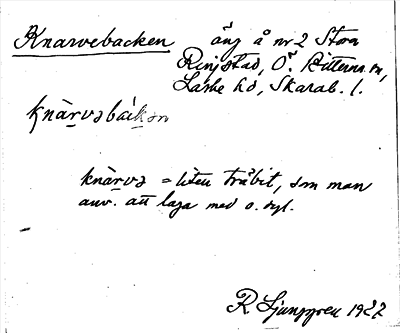 Knarvebacken äng å nr 2 Stora
Ringstad, Ö. Bitterna sn,
Laske hd, Skarab. l.
knàrvəbàkən
knàrvə = liten träbit, som man
anv. att laga med o. dyl.
R. Ljunggren 1927